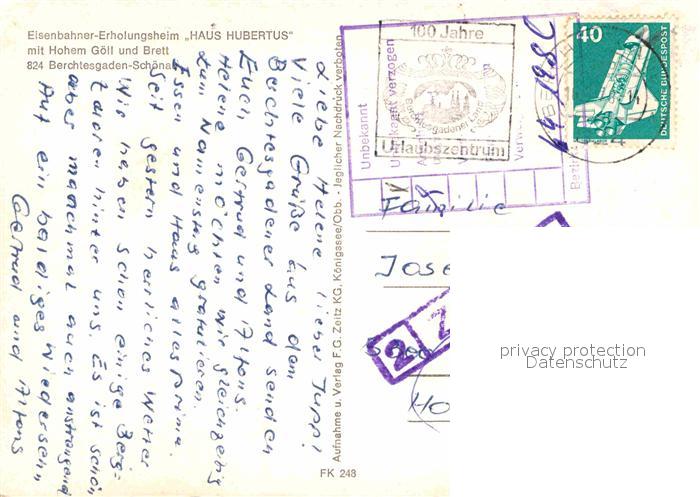 Eisenbahner-Erholungsheim „HAUS HUBERTUS"
mit Hohem Göll und Brett
824 Berchtesgaden-Schönau
Liebe Helene lieber Jupp!
Viele Grüße aus dem
Berchtesgadener Land senden
Euch, Gertrud und Alfons.
Helene möchten wir gleichzeitig
zum Namenstag gratulieren.
Essen und Haus alles prima.
Seit gestern herrliches Wetter
Wir haben schon einige Berg-
touren hinter uns. Es ist schön
aber manchmal auch anstrengend
Auf ein baldiges Wiedersehn
Gertrud und Alfons
Aufnahme u. Verlag F.G. Zeitz KG, Königssee/Obb. - Jeglicher Nachdruck verboten
FK 248
100 Jahre
Berchtesgadener
Urlaubszentrum
Unbekannt
Unbekannt verzogen
40
DEUTSCHE BUNDESPOST
Familie
Jose
Ho
2
privacy protection
Datenschutz